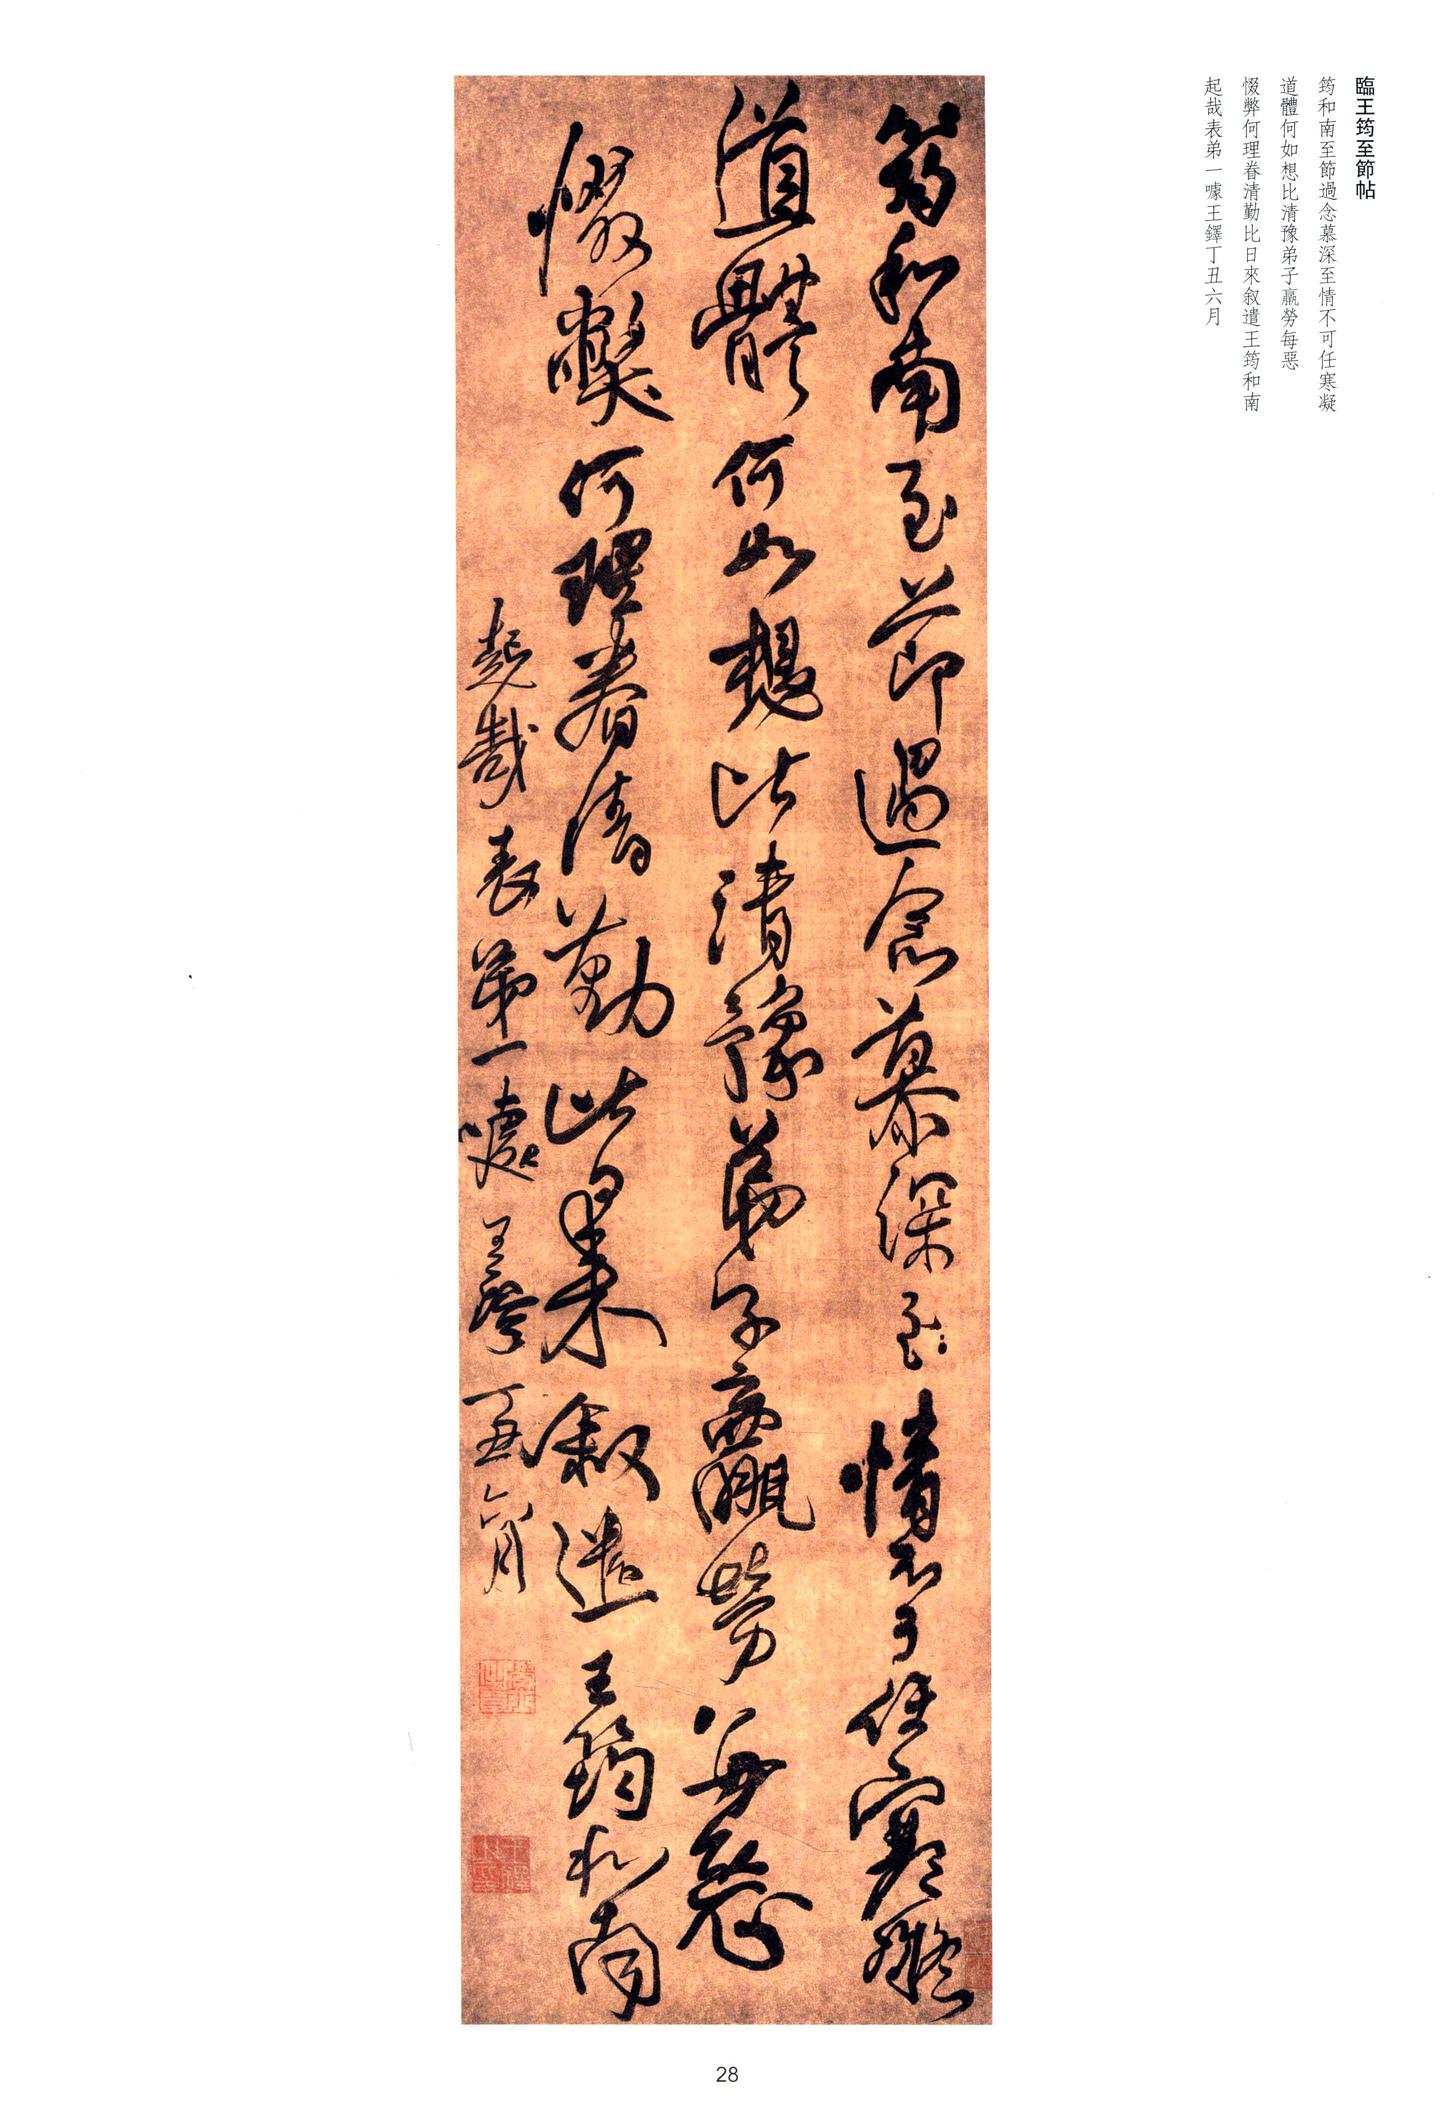 臨王筠至節帖
筠和南至節過念慕深至情不可任寒凝
道體何如想比清豫弟子羸勞每惡
惙弊何理眷清勤比日來叙遣王筠和南
起哉表弟一噱王鐸丁丑六月
筠和南至節過念慕深至情不可任寒凝
道體何如想比清豫弟子羸勞每惡
惙弊何理眷清勤比日來叙遣王筠和南
起哉表弟一噱王鐸丁丑六月
28